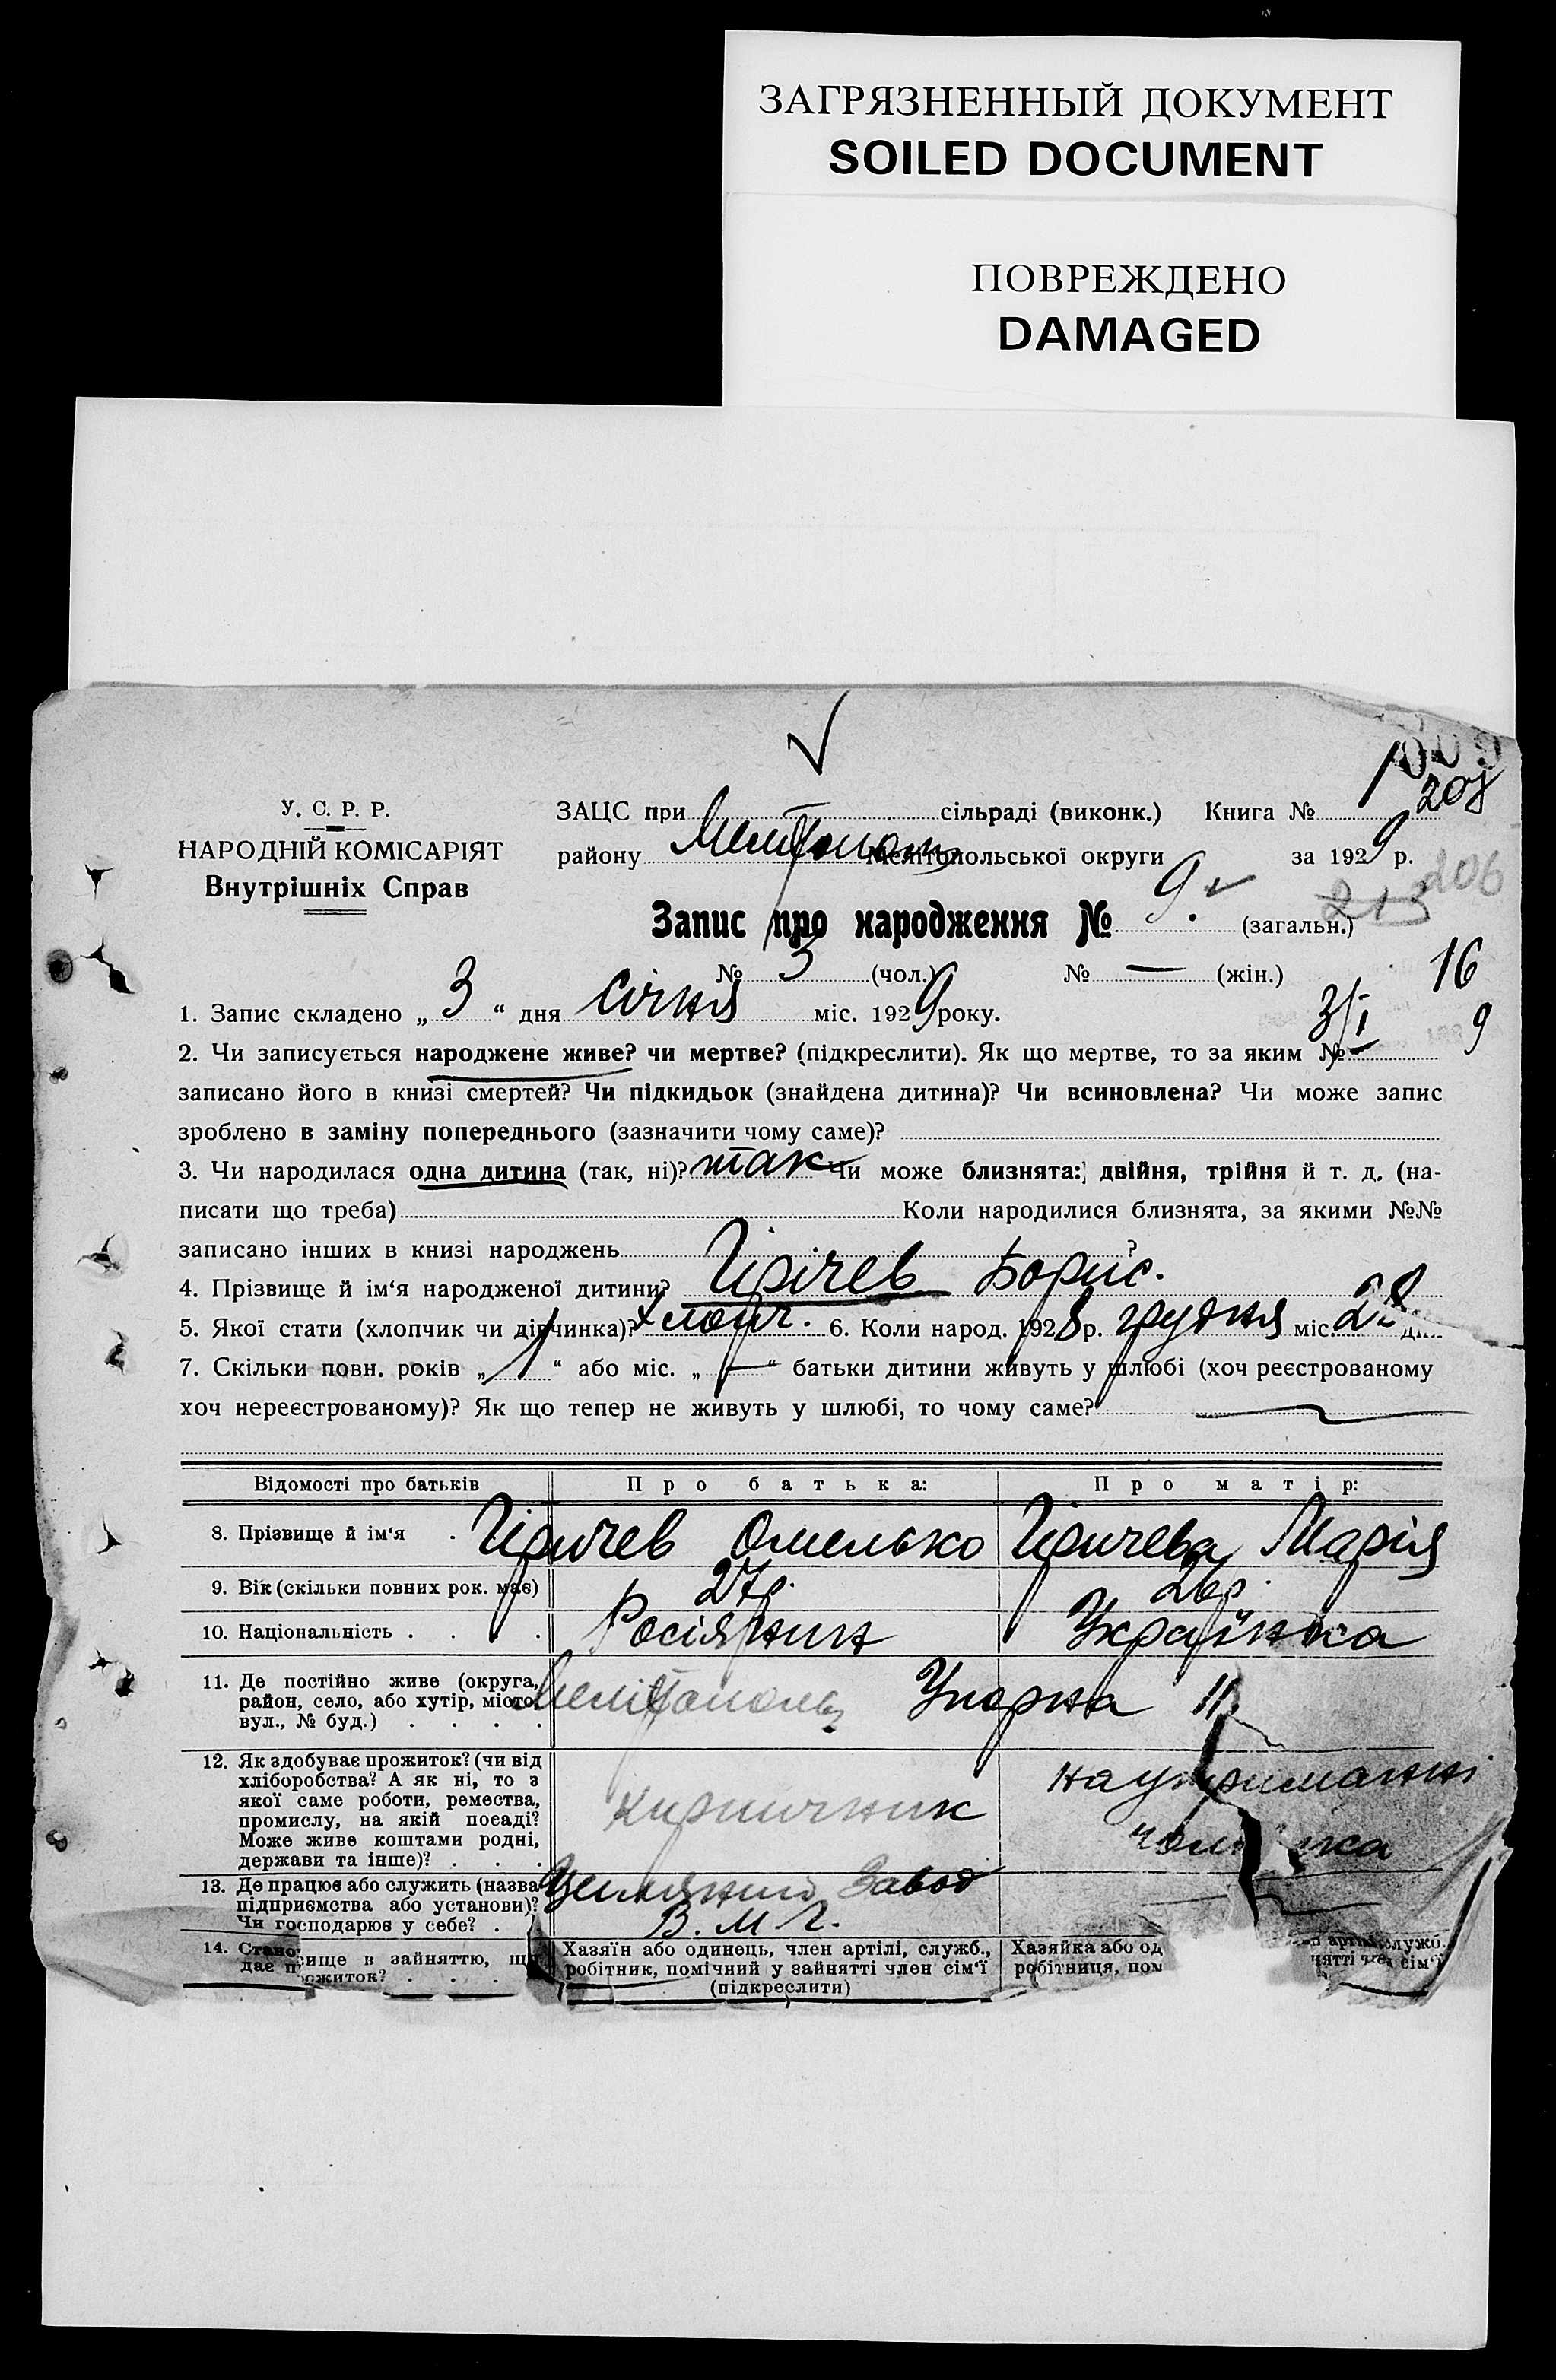 ЗАГРЯЗНЕННЫЙ ДОКУМЕНТ
SOILED DOCUMENT
ПОВРЕЖДЕНО
DAMAGED
У. С. Р. Р.
НАРОДНІЙ КОМІСАРІЯТ
Внутрішніх Справ
ЗАЦС при сільраді (виконк.) Книга №
208
району Мелітопольської округи за 1929 р.
206
213
Запис про народження № 9 (загальн.)
№ 3 (чол.) № — (жін.)
16
1. Запис складено „ 3 “ дня січня міс. 1929 року.
3/I 9
2. Чи записується народжене живе? чи мертве? (підкреслити). Як що мертве, то за яким №
записано його в книзі смертей? Чи підкидьок (знайдена дитина)? Чи всиновлена? Чи може запис
зроблено в заміну попереднього (зазначити чому саме)?
3. Чи народилася одна дитина (так, ні)? так Чи може близнята: двійня, трійня й т. д. (на-
писати що треба) Коли народилися близнята, за якими №№
записано інших в книзі народжень ?
4. Прізвище й ім‘я народженої дитини? Гірічев Борис.
5. Якої стати (хлопчик чи дівчинка)? хлопч. 6. Коли народ. 1928 р. грудня міс. 28
7. Скільки повн. років „ 1 “ або міс. „ — “ батьки дитини живуть у шлюбі (хоч реєстрованому
хоч нереєстрованому)? Як що тепер не живуть у шлюбі, то чому саме? —
Відомості про батьків Про батька: Про матір:
8. Прізвище й ім‘я Гіричев Омелько Гіричева Марія
9. Вік (скільки повних рок. має) 27р. 26р.
10. Національність Росіянин Українка
11. Де постійно живе (округа,
район, село, або хутір, місто,
вул., № буд.) Мелітополь Упорна 11
12. Як здобуває прожиток? (чи від
хліборобства? А як ні, то з
якої саме роботи, ремества,
промислу, на якій посаді?
Може живе коштами родні,
держави та інше)?
кирпичник
на утриманні
13. Де працює або служить (назва
підприємства або установи)?
Чи господарює у себе?
Завод
В. М. Г.
14. ище в зайняттю, що
дає прожиток?
Хазяїн або одинець, член артілі, служб.,
робітник, помічний у зайнятті член сім‘ї
(підкреслити)
Хазяйка або од служб.
робітниця, пом сім‘ї